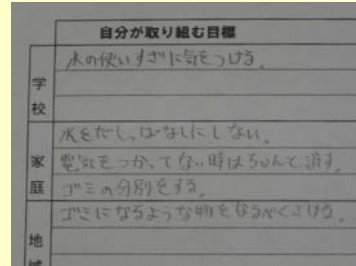 自分が取り組む目標
学校
水の使いすぎに気をつける。
家庭
水をだしっぱなしにしない。
電気をつかってない時はちゃんと消す。
ゴミの分別をする。
地域
ゴミになるような物をなるべくさける。